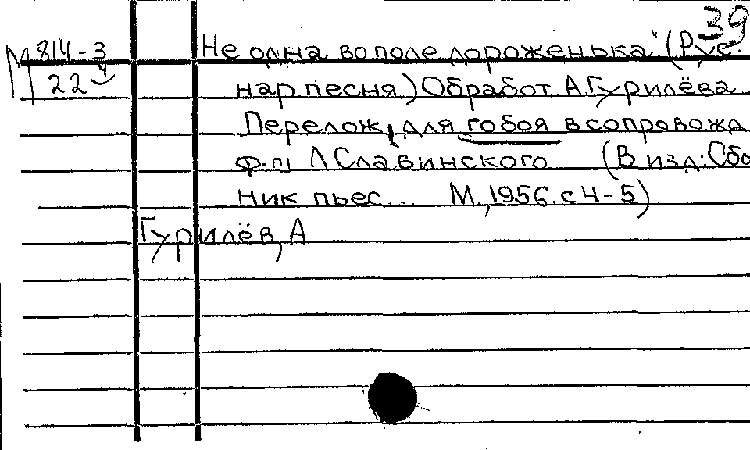 39
М 814-3
22
Не одна во поле дороженька" (Рус
нар. песня) Обработ А.Гурилёва
Перелож. для гобоя в сопровожд
ф-п Л Славинского (В изд: Сбо
ник пьес... М., 1956. с 4-5)
Гурилёв, А